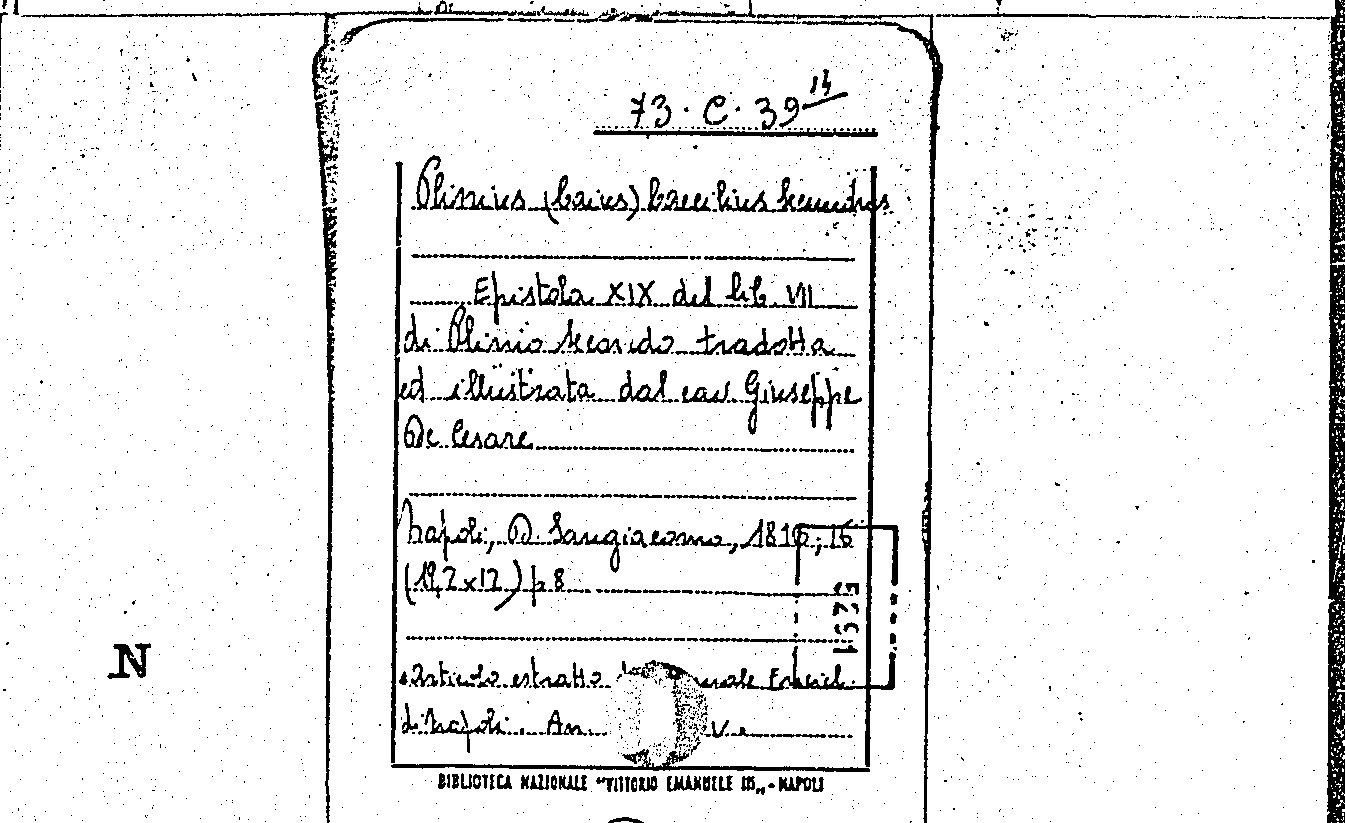 73. C. 39 14
Plinius (Caius) Caecilius Secundus
Epistola XIX del lib. VII
di Plinio Secondo tradotta
ed illustrata dal cav. Giuseppe
De Cesare
Napoli, D. Sangiacomo, 1816; 16
(19,2x12) p 8
Articolo estratto
di Napoli. An. V.
52591
N
BIBLIOTECA NAZIONALE "VITTORIO EMANUELE III„ - NAPOLI